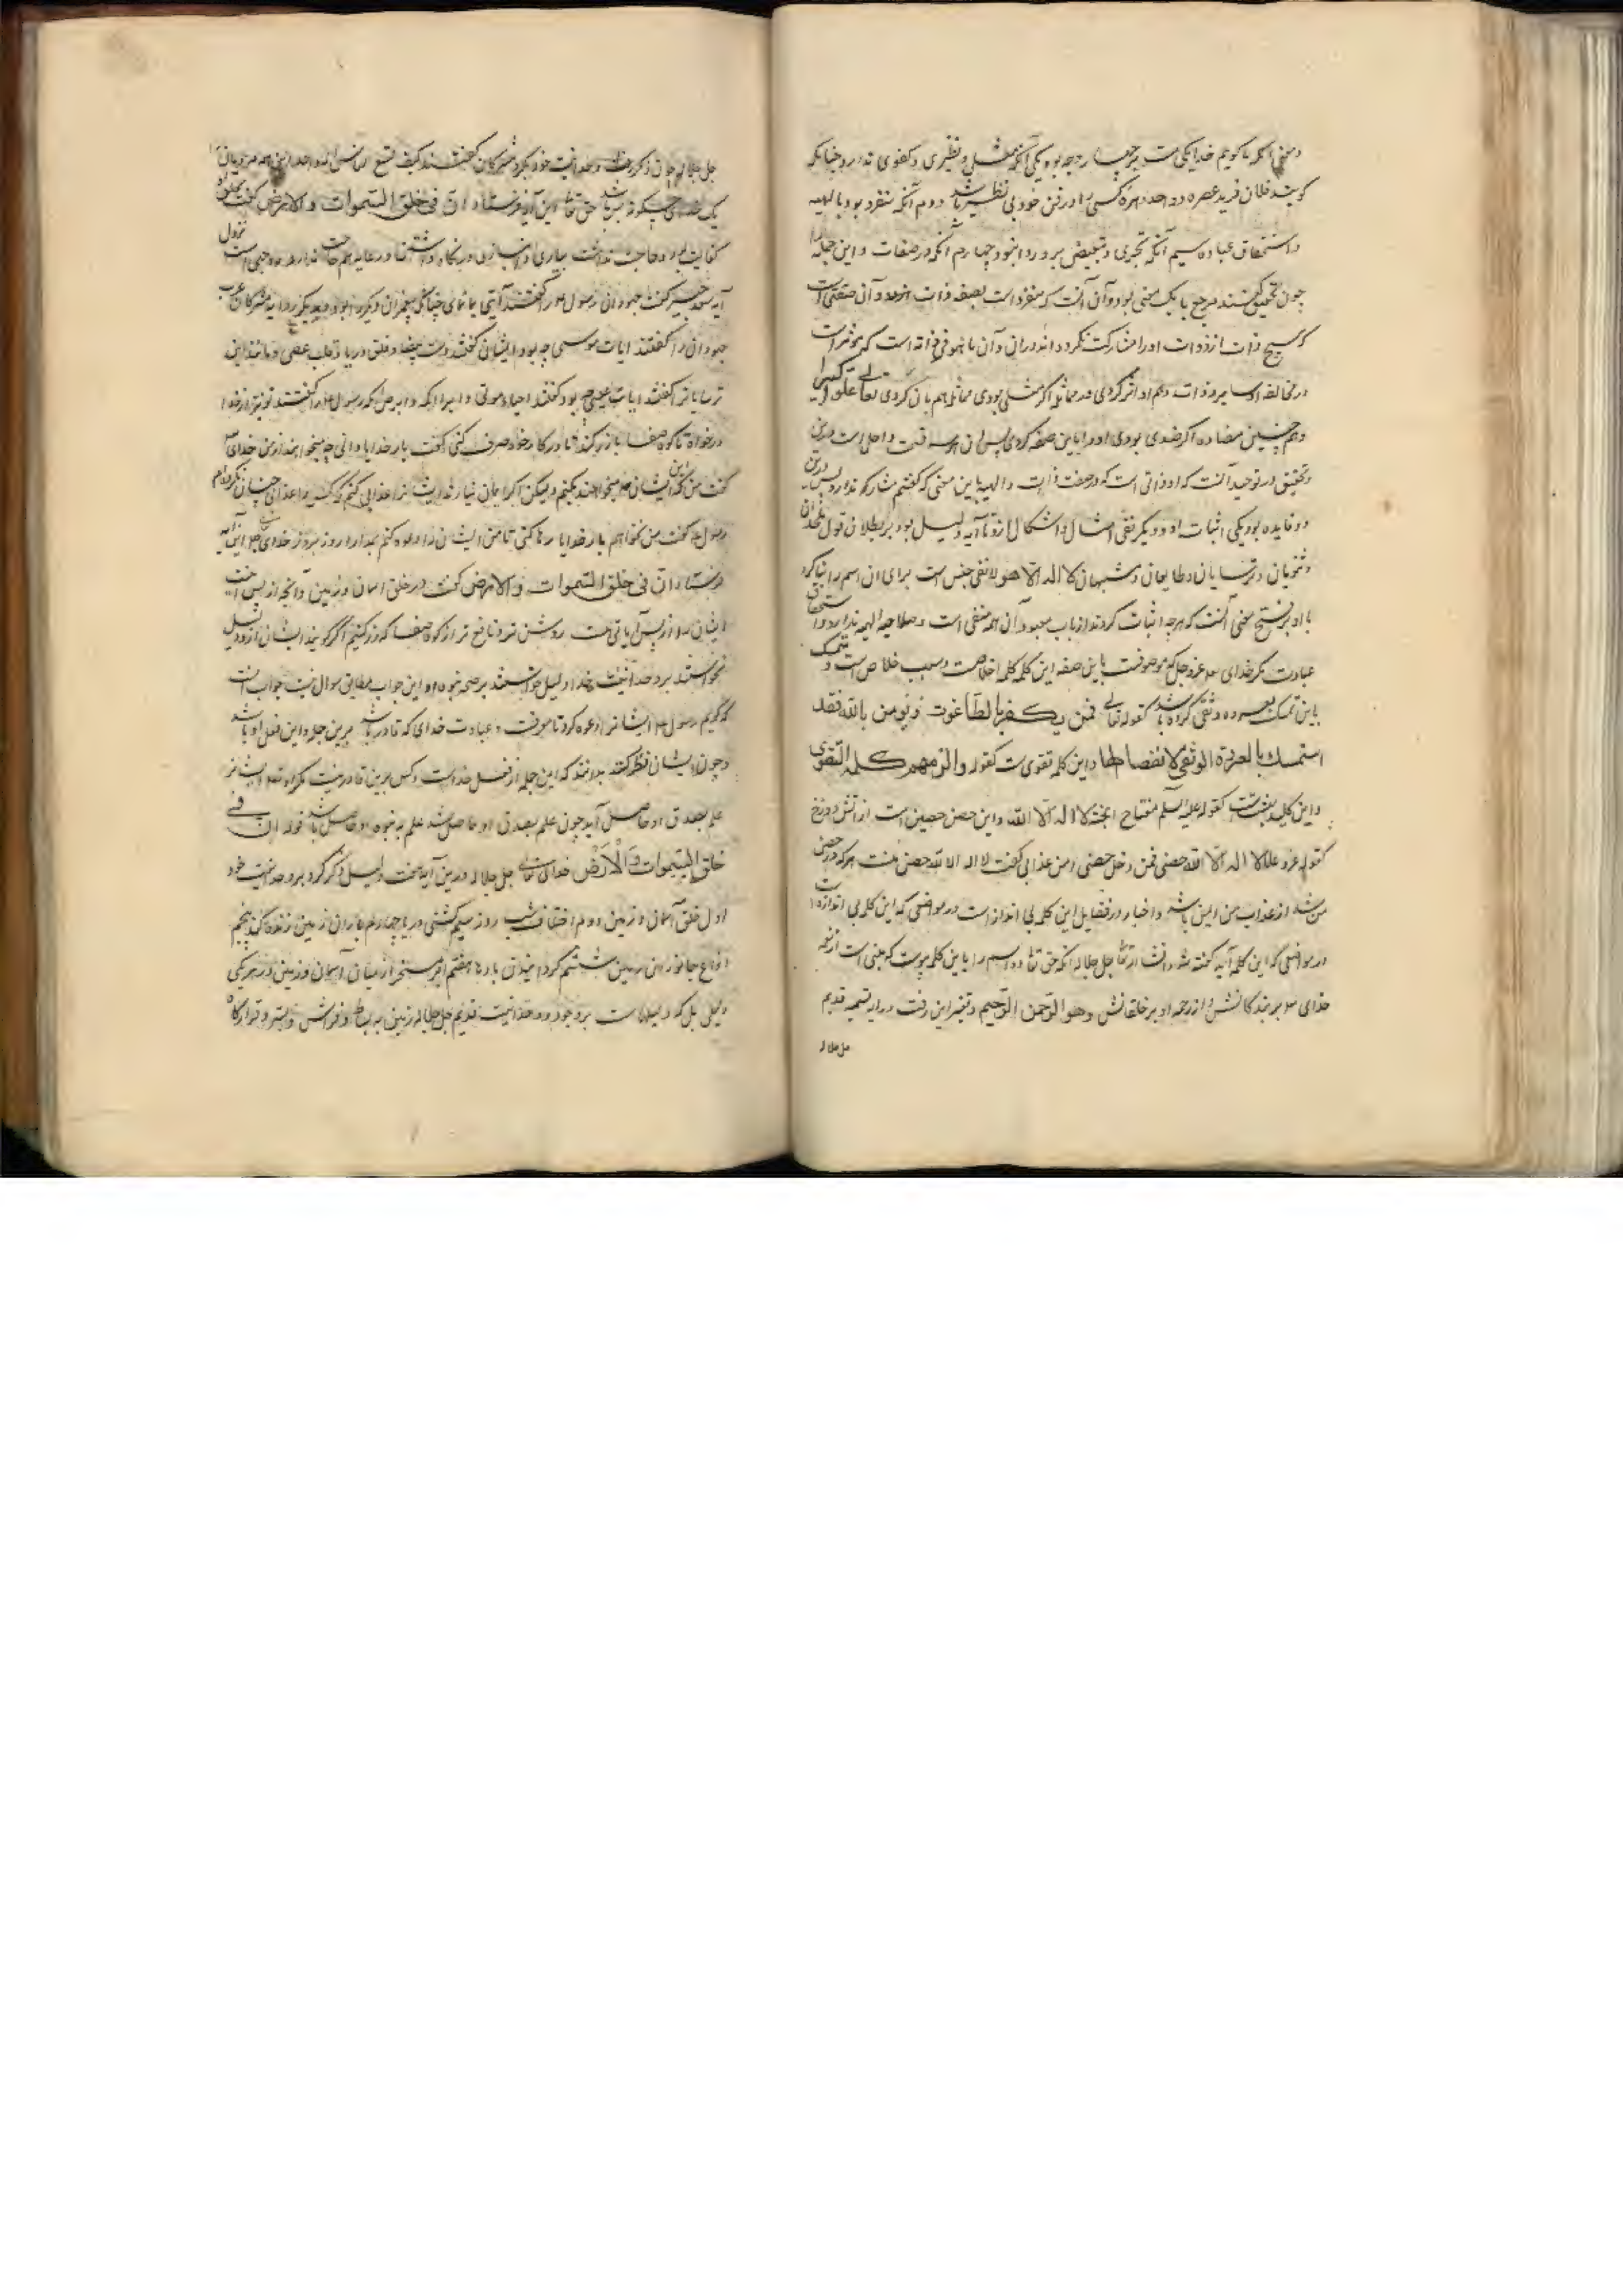 و معنی آنکه ما گویم خدا یکیست بر چهار وجه بود یکی آنکه مثل و نظیری و کفوی ندارد چنانکه
گویند فلان فرید عصره و واحد دهره کسی را در فن خود بی نظیر باشد دوم آنکه متفرد بود بالهیه
و استحقاق عباده سیم آنکه تجزی و تبعیض برو روا نبود چهارم آنکه در صفات و این جمله را
چون تحقیق کنند مرجع با یک معنی بود و آن آنست که متفرد است بصفه ذات ازو و آن صفتی است
که هیچ ذات از ذوات او را مشارکت نکرد و اندران و آن ما هو فی ذاته است که
در مخالفه او سایر ذوات و هم او اثر کردی در مماثله اگر مثلی بودی مماثله هم بآن کردی تعالی علوا کبیرا
و هم چنین مضاده اگر ضدی بودی او را باین صفه کردی پس
تحقیق در توحید آنست که او ذاتی است که در صفت ذات و الهیه باین معنی که گفتیم مشارک ندارد پس درین
دو فایده بود یکی اثبات او و دیگر نفی امثال و اشکال ازو تا آیه دلیل بود بر بطلان قول ملحدان
و ثنویان و ترسایان و طبایعیان و مشبهیان لا اله الا هو لا نفی جنس است برای آن اسم را بنا کرد
با او بر فتح معنی آنست که هرچه اثبات کردند از باب معبودان همه منفی است و صلاحیه الهیه ندارد و استحقاق
عبادت مگر خدای عز و جل که موصوفت باین صفه این کلمه کلمه اخلاصت و سبب خلاص است و تمسک
باین تمسک بعروه وثقی کرده باشد کقوله تعالی فمن یکفر بالطاغوت و یومن بالله فقد
استمسك بالعروة الوثقی لا انفصام لها و این کلمه تقوی ست کقوله و الزمهم کلمة التقوی
و این کلید بهشتست کقوله علیه السلم مفتاح الجنة لا اله الا الله و این حصن حصین است از آتش دوزخ
کقوله عز و علا لا اله الا الله حصنی فمن دخل حصنی امن عذابی گفت لا اله الا الله حصن منست هر که در حصن
من شد از عذاب من ایمن باشد و اخبار در فضایل این کلمه بی انداز است در مواضعی که این کلمه بی اندازه است
در مواضعی که این کلمه آید گفته شود انشا الله تعالی جل جلاله آنکه حق تعالی دو اسم را باین کلمه پیوست که مبنی است از رحمه
خدای بر بندگانش و از رحمه او بر خلقانش و هو الرحمن الرحیم و تفسیر این رفت در آیه تسمیه قدیم
جل جلاله
جل جلاله چون ذکر وحدانیت خود بکرد مشرکان گفتند کیف یسع الناس اله واحد این همه مردمان را
یک خدای چگونه بسر باشد حق تعالی این آیه فرستاد ان فی خلق السموات و الارض گفت
کفایت بود و حاجت نداشت بیاری و انبازی در نگاه داشتن
آیه سعید جبیر گفت جهودان رسول را گفتند آیتی بما نمای چنانکه پیغمبران دیگر را بود مشرکان عرب
جهودان را گفتند ایات موسی چه بود ایشان گفتند ید بیضا و فلق دریا و قلب عصی و مانند این
ترسایان را گفتند ایات عیسی چه بود گفتند احیاء موتی و ابراء اکمه و ابرص آنکه رسول را گفتند تو نیز از خدا
درخواه تا کوه صفا با زر کند تا در کار خود صرف کنی گفت بار خدایا دانی چه میخواهند از من خدای
گفت من آنکه ایشان میخواهند بکنم ولیکن اگر ایمان نیارند ایشان را عذابی کنم که کس را عذابی چنان نکرده ام
رسول گفت من نخواهم بار خدایا رها کنی تا من ایشان را دعوه کنم بمدارا روز بروز خدای تعالی این آیه
فرستاد ان فی خلق السموات و الارض گفت در خلق آسمان و زمین و آنچه از پس
ایشان را از پس آیاتی هست روشن تر و نافع تر از کوه صفا که زر کنیم اگر گویند ایشان ازو دلیل
نخواستند بر وحدانیت خدا دلیل خواستند بر صحه نبوه او این جواب مطابق سوال نیست جواب آنست
که گویم رسول ایشان را دعوه کرد تا معرفت و عبادت خدای که قادر باشد برین جمله و این فعل او باشد
و چون ایشان نظر کنند بدانند که این جمله از فعل خداست و کس برینها قادر نیست مگر او
علم بصدق او حاصل آید چون علم بصدق او حاصل شد علم به نبوه او حاصل باشد قوله ان فی
خلق السموات و الارض خدای تعالی جل جلاله درین آیه هفت دلیل ذکر کرد بر وحدانیت خود
اول خلق آسمان و زمین دوم اختلاف شب و روز سیم کشتی در دریا چهارم باران که زمین زنده کند پنجم
انواع جانوران زمین ششم گردانیدن بادها هفتم ابر مسخر از میان آسمان و زمین و هر یکی
دلیلی بل که دلیلهاست بر وجود و وحدانیت قدیم جل جلاله زمین به بساط و فراش و بستر و قرارگاه